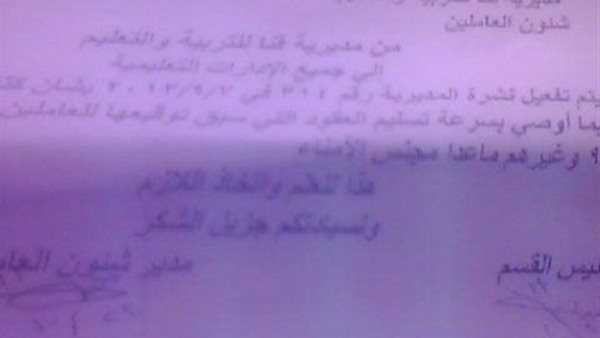 شئون العاملين
من مديرية قنا للتربية والتعليم
الي جميع الإدارات التعليمية
يتم تفعيل نشرة المديرية رقم ٣١٤ في ٢٠١٣/٩/٧ بشأن
بما أوصي بسرعة تسليم العقود التي سبق توقيعها للعاملين
وغيرهم ماعدا مجلس الأمناء
هذا للعلم واتخاذ اللازم
ولسيادتكم جزيل الشكر
رئيس القسم مدير شئون